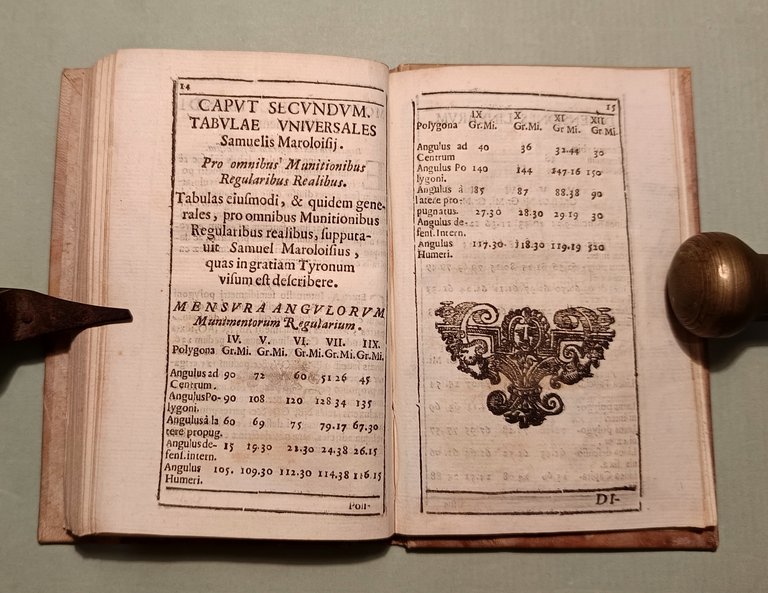 14
CAPVT SECVNDVM.
TABVLAE VNIVERSALES
Samuelis Maroloisij.
Pro omnibus Munitionibus
Regularibus Realibus.
Tabulas eiusmodi, & quidem gene-
rales, pro omnibus Munitionibus
Regularibus realibus, supputa-
uit Samuel Maroloisius,
quas in gratiam Tyronum
visum est describere.
MENSVRA ANGVLORVM
Munimentorum Regularium.
IV. V. VI. VII. IIX.
Polygona Gr.Mi. Gr.Mi. Gr.Mi. Gr.Mi. Gr.Mi.
Angulus ad 90 72 60 51 26 45
Centrum.
Angulus Po- 90 108. 120 128 34 135
lygoni.
Angulus à la 60 69 75 79.17 67.30
tere propug.
Angulus de- 15 19.30 21.30 24.38 26.15
fens. intern.
Angulus 105. 109.30 112.30 114.38 116.15
Humeri.
Poli-
15
IX X XI XII
Polygona Gr.Mi. Gr.Mi. Gr Mi. Gr.Mi.
Angulus ad 40 36 32.44 30
Centrum
Angulus Po 140 144 147 16 150
lygoni.
Angulus à 85 87 88.38 90
latere pro-
pugnatus. 27.30 28.30 29 19 30
Angulus de-
fens. Intern.
Angulus 117.30 118.30 119.19 320
Humeri.
DI-